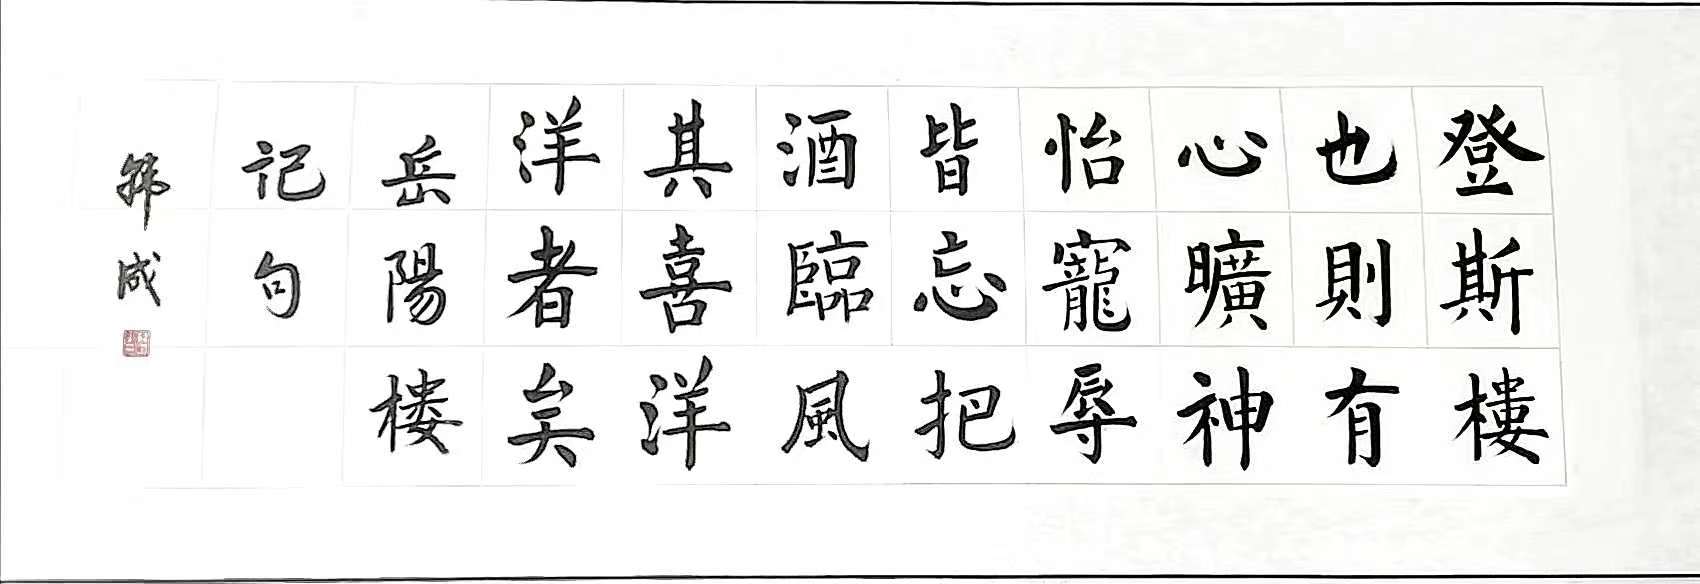 登斯樓
也則有
心曠神
怡寵辱
皆忘把
酒臨風
其喜洋
洋者矣
岳陽楼
记句
成